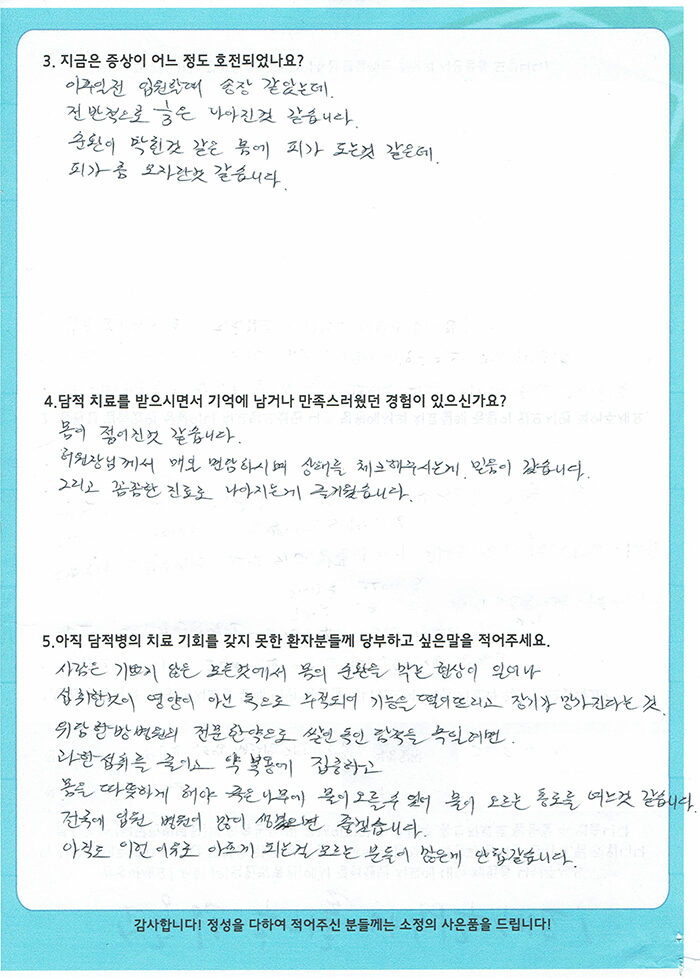 3. 지금은 증상이 어느 정도 호전되었나요?
이주일전 입원할때 송장 같았는데.
전반적으로 1/3은 나아진것 같습니다.
순환이 막힌것 같은 몸에 피가 도는것 같은데.
피가 좀 모자란것 같습니다.
4.담적 치료를 받으시면서 기억에 남거나 만족스러웠던 경험이 있으신가요?
몸이 젊어진것 같습니다.
허원장님께서 매일 면담하시며 상태를 체크해주시는게 믿음이 갔습니다.
그리고 꼼꼼한 진료로 나아지는게 즐거웠습니다.
5.아직 담적병의 치료 기회를 갖지 못한 환자분들께 당부하고 싶은말을 적어주세요.
사람은 기쁘지 않은 모든것에서 몸의 순환을 막는 현상이 일어나
섭취한것이 영양이 아닌 독으로 누적되여 기능을 떨어뜨리고 장기가 망가진다는 것.
위담한방병원의 전문한약으로 쌓인 담독을
과한섭취를 줄이고 약 복용에 집중하고
몸을 따뜻하게 해야 죽은나무에 물이오를수 있어 물이 오르는 통로를 여는것 같습니다.
전국에 입원 병원이 많이 생겼으면 좋겠습니다.
아직도 이런 이유로 아프게 되는걸 모르는 분들이 많은게 안탑갑습니다.
감사합니다! 정성을 다하여 적어주신 분들께는 소정의 사은품을 드립니다!